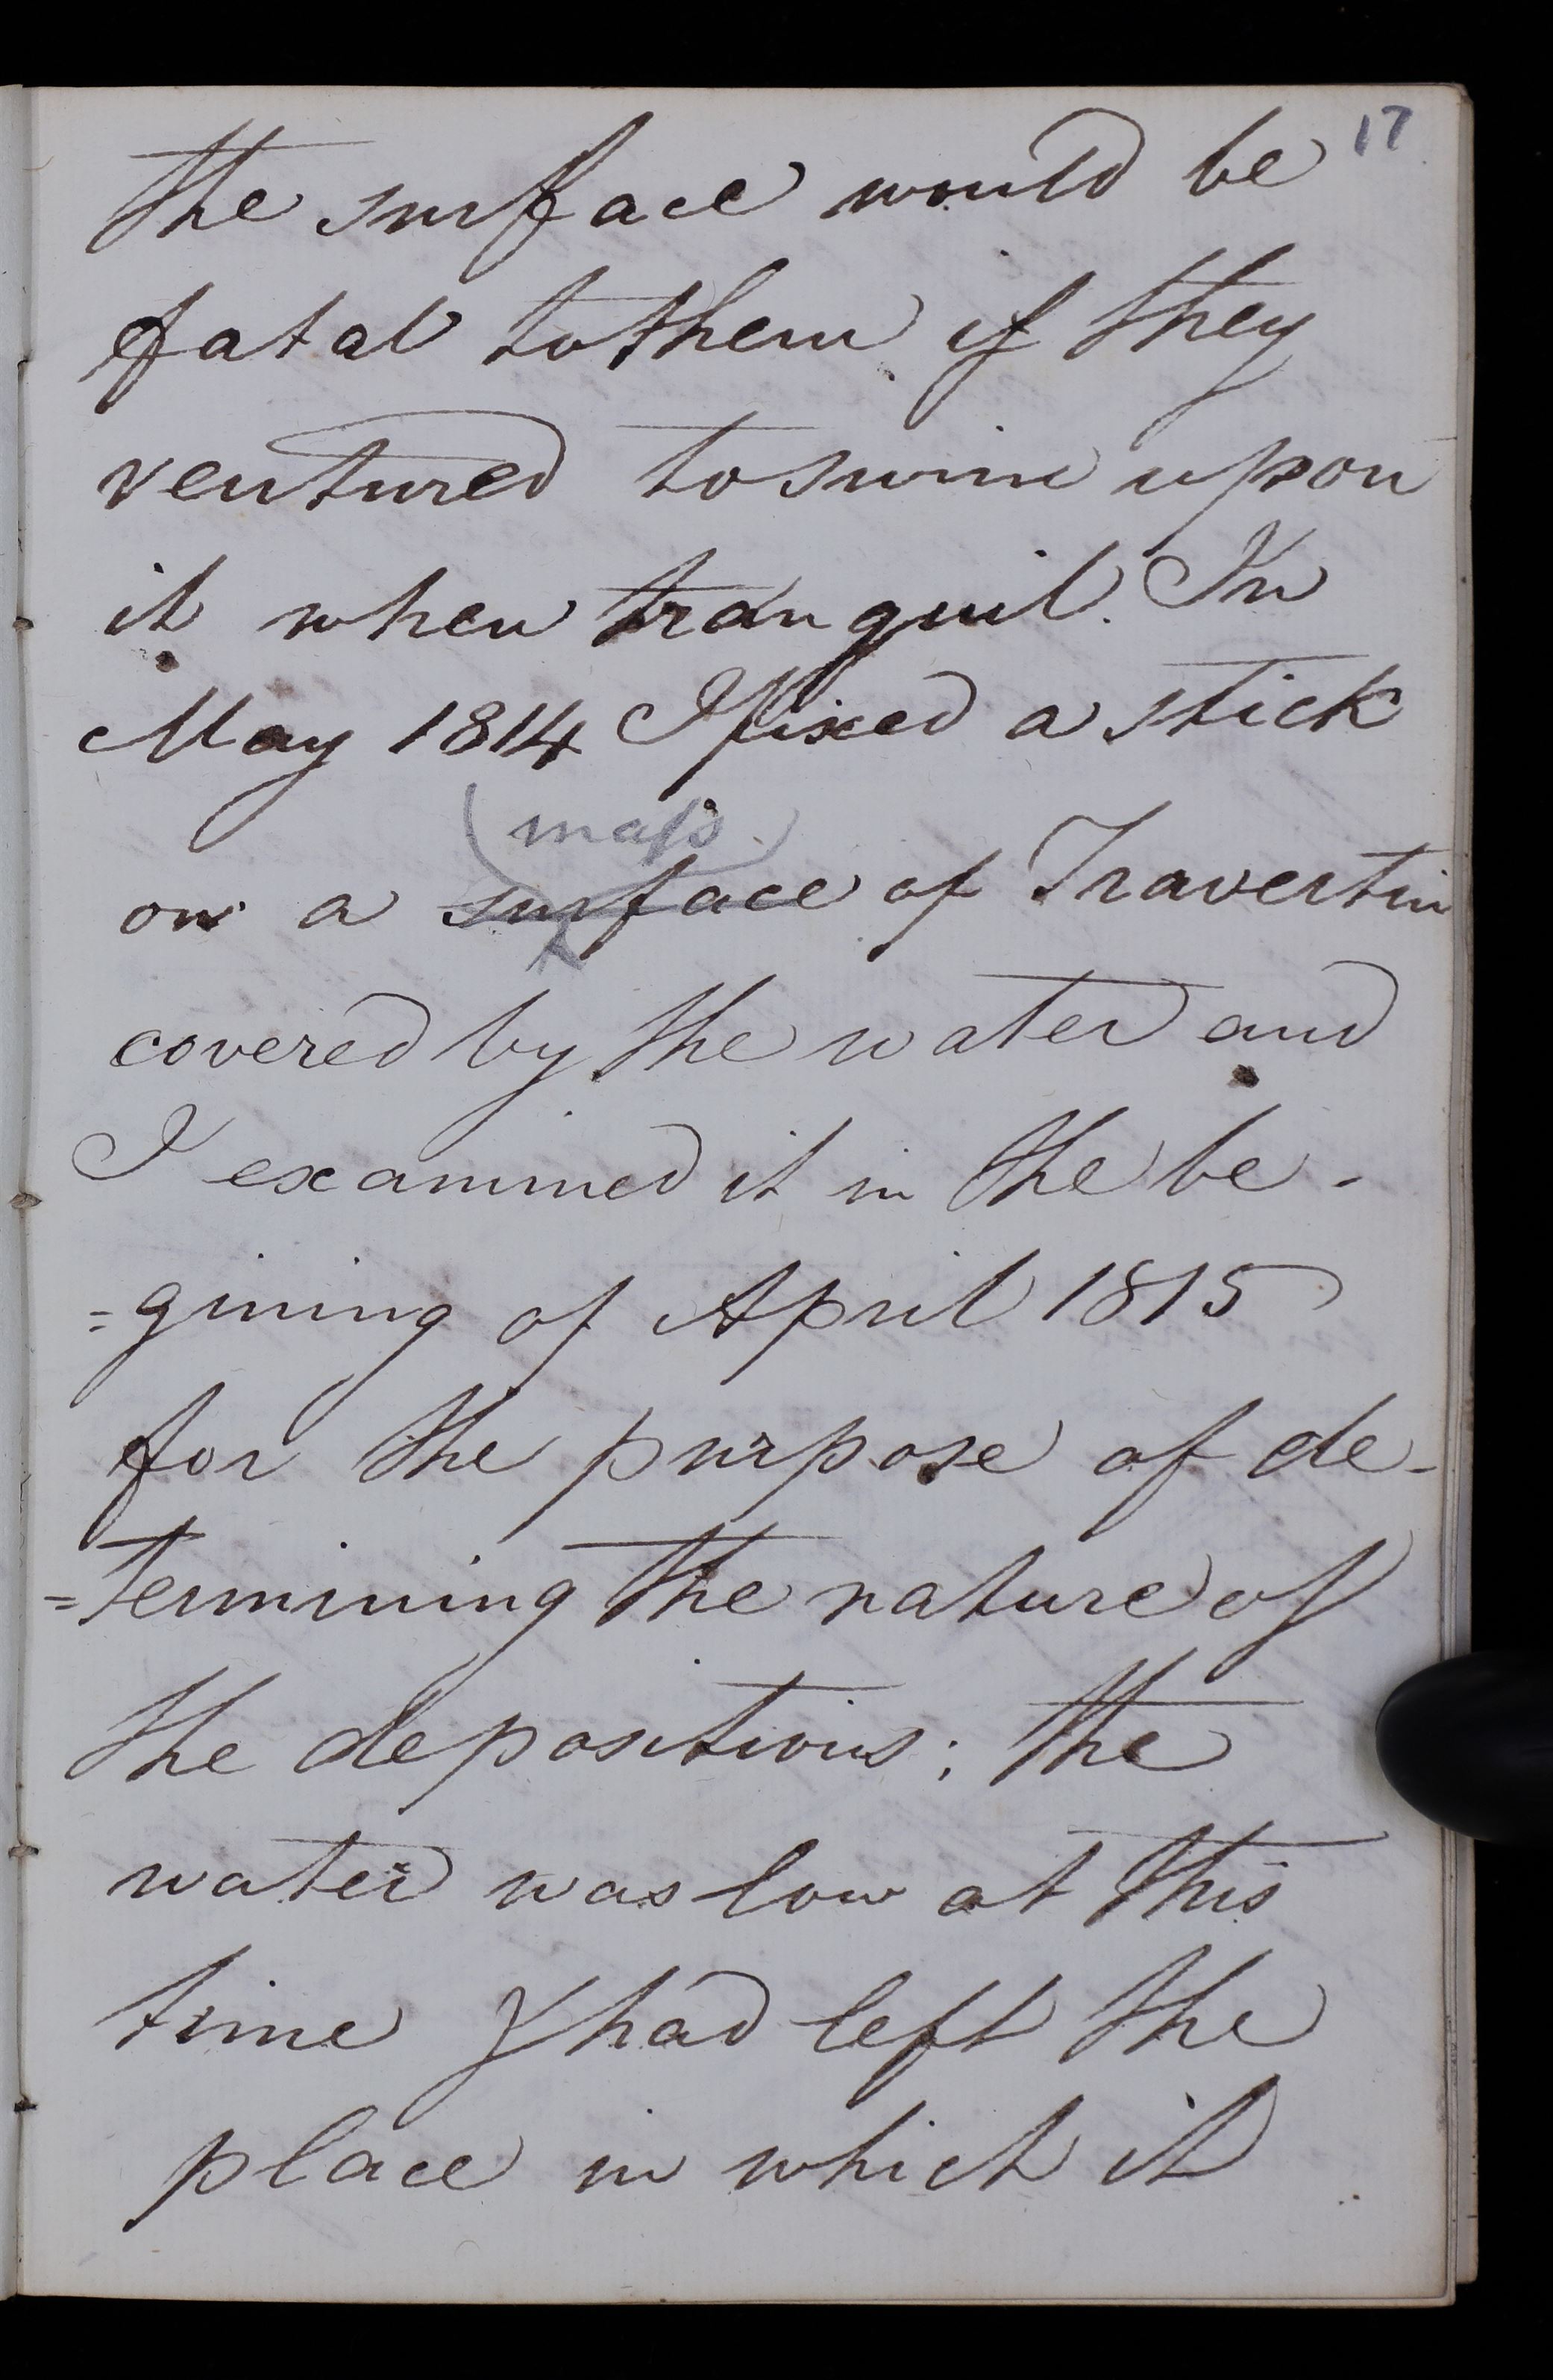 17
the surface would be
fatal to them if they
ventured to swim upon
it when tranquil. In
May 1814 I fixed a stick
(mass)
on a surface of Travertin
covered by the water and
I examined it in the be-
=gining of April 1815
for the purpose of de-
=termining the nature of
the depositions; the
water was low at this
time & had left the
place in which it